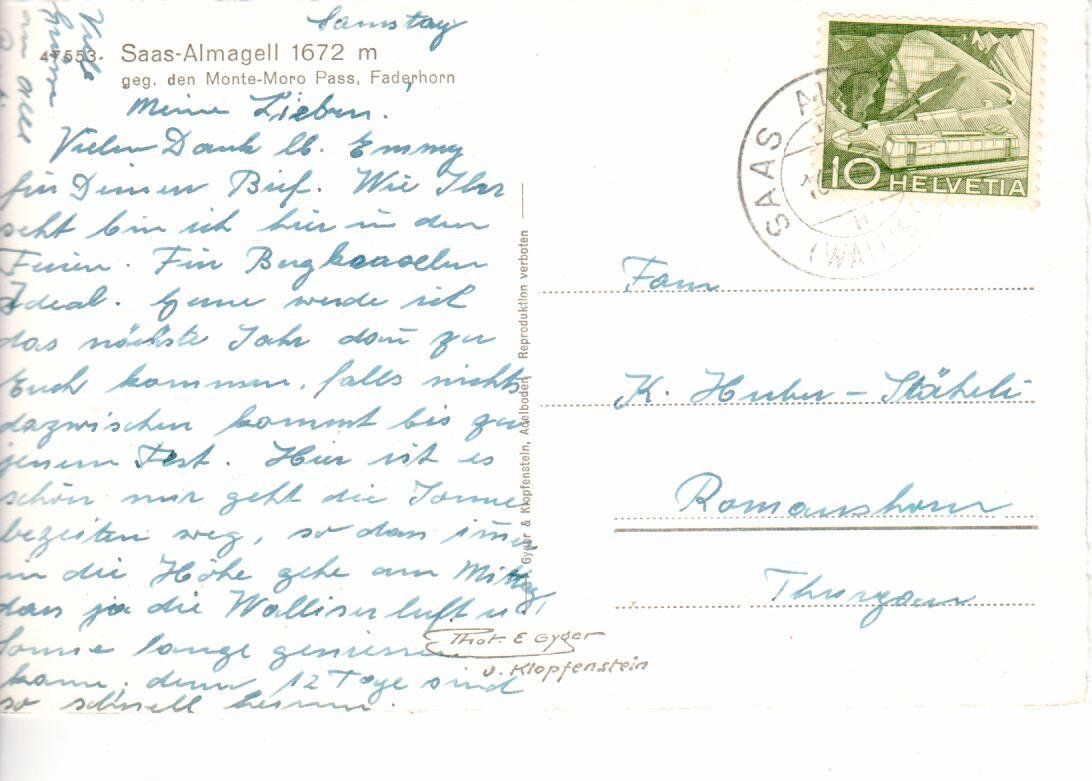 Samstag
47553. Saas-Almagell 1672 m
geg. den Monte-Moro Pass, Faderhorn
Meine Lieben.
Vielen Dank lb. Emmy
für Deinen Brief. Wie Ihr
seht bin ich hier in den
Ferien. Ein
Ideal. Gerne werde ich
das nächste Jahr dann zu
Euch kommen, falls nichts
dazwischen kommt bis zu
jenem Fest. Hier ist es
schön nur geht die Sonne
bezeiten weg, so dass
in die Höhe gehe am Mittag,
dass ja die Walliserluft u.
Sonne lange geniessen
kann, denn 12 Tage sind
so schnell herum.
Viele
Grüsse
an alle
Gyger & Klopfenstein, Adelboden Reproduktion verboten
Phot. E Gyger
u. Klopfenstein
SAAS
(WALLIS)
10 HELVETIA
Fam
K. Huber-Stäheli
Romanshorn
Thurgau